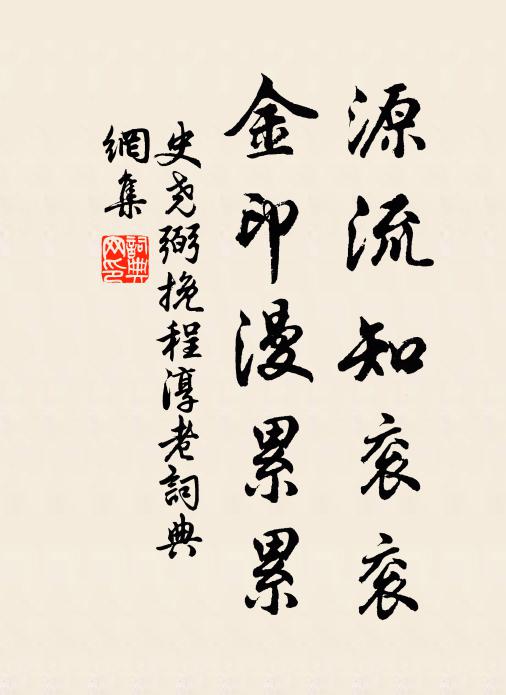 源流知衮衮
金印漫累累
史尧弼挽程淳老詞典
網集
詞典網印